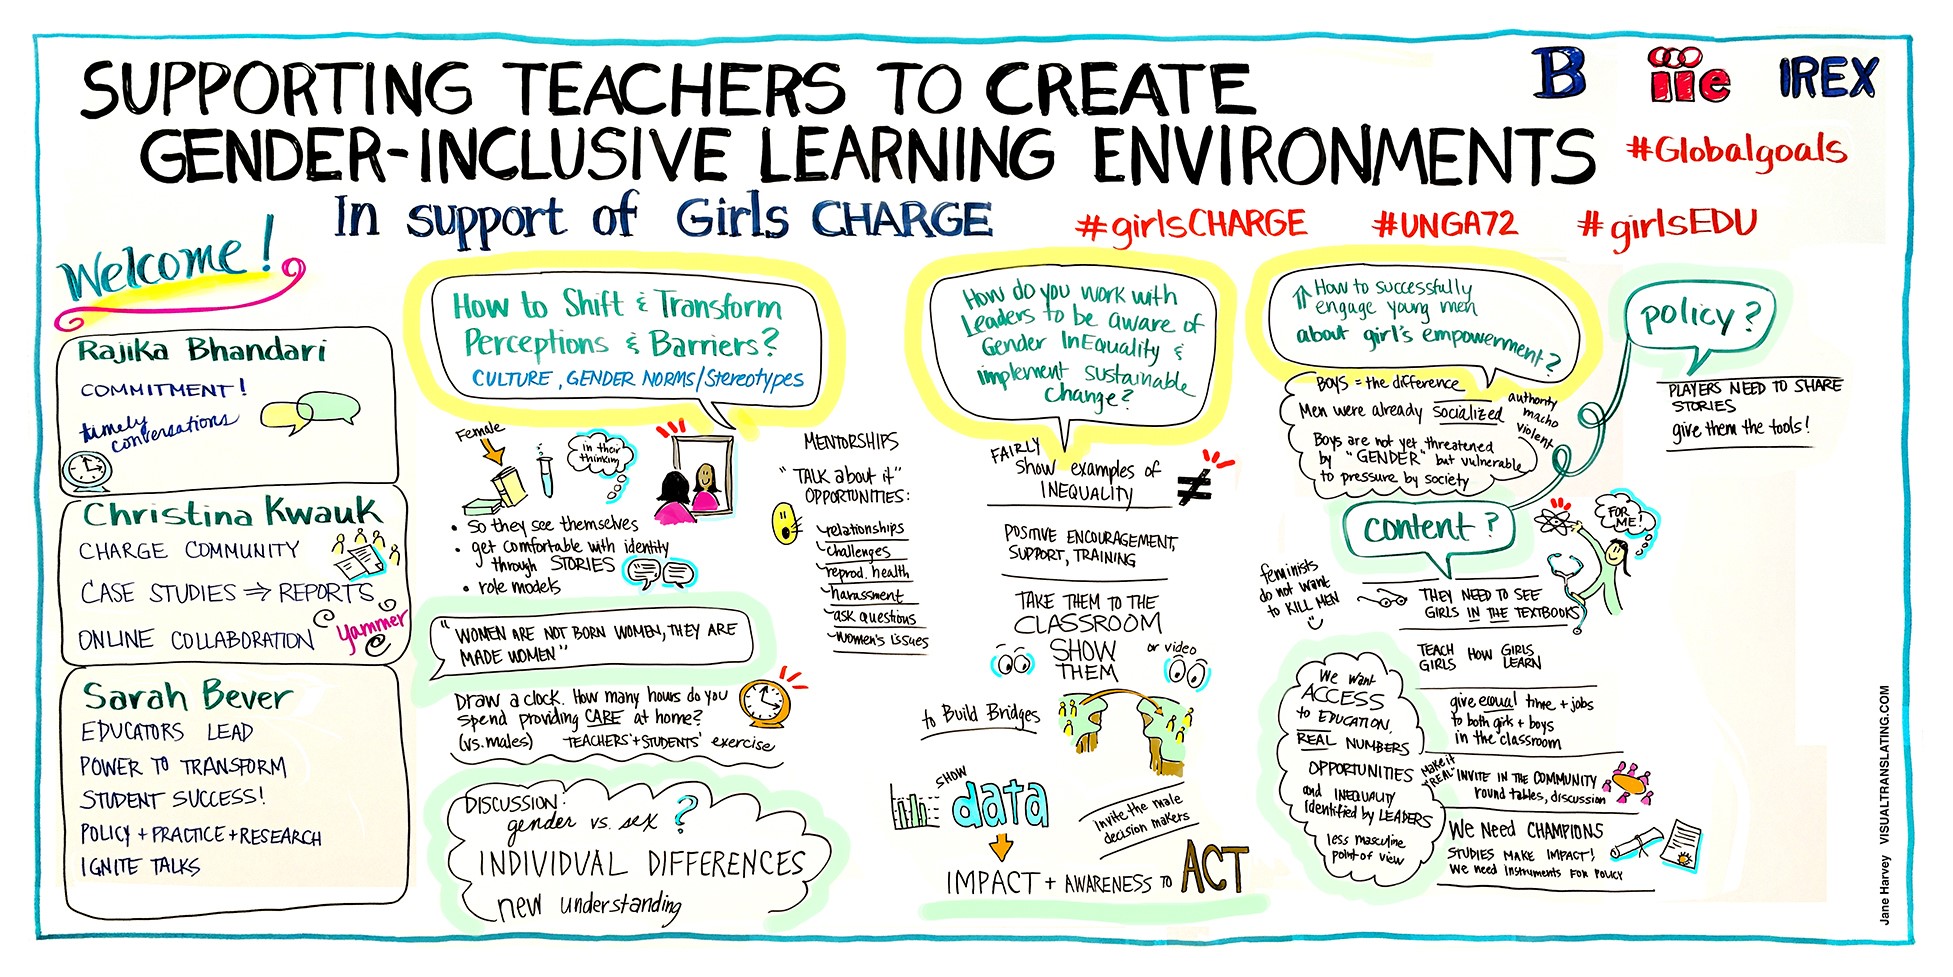 SUPPORTING TEACHERS TO CREATE
GENDER-INCLUSIVE LEARNING ENVIRONMENTS
In support of Girls CHARGE
B
iie
IREX
#Globalgoals
#girlsCHARGE
#UNGA72
#girlsEDU
Welcome!
Rajika Bhandari
COMMITMENT!
timely
conversations
Christina Kwauk
CHARGE COMMUNITY
CASE STUDIES ⇒ REPORTS
ONLINE COLLABORATION
yammer
@
Sarah Bever
EDUCATORS LEAD
POWER TO TRANSFORM
STUDENT SUCCESS!
POLICY + PRACTICE + RESEARCH
IGNITE TALKS
How to Shift & Transform
Perceptions & Barriers?
CULTURE, GENDER NORMS/Stereotypes
Female
in their
thinking
• So they see themselves
• get comfortable with identity
through STORIES
• role models
"WOMEN ARE NOT BORN WOMEN, THEY ARE
MADE WOMEN"
Draw a clock. How many hours do you
spend providing CARE at home?
(vs. males) TEACHERS'+STUDENTS' exercise
DISCUSSION:
gender vs. sex ?
INDIVIDUAL DIFFERENCES
new understanding
MENTORSHIPS
"TALK about it"
OPPORTUNITIES:
relationships
challenges
reprod. health
harassment
ask questions
women's issues
How do you work with
Leaders to be aware of
Gender InEquality &
implement sustainable
Change?
FAIRLY
Show examples of
INEQUALITY
≠
POSITIVE ENCOURAGEMENT,
SUPPORT, TRAINING
TAKE THEM TO THE
CLASSROOM
SHOW
THEM
or video
to Build Bridges
SHOW
data
invite the male
decision makers
IMPACT + AWARENESS to ACT
How to successfully
engage young men
about girl's empowerment?
BOYS = the difference
Men were already socialized
authority
macho
violent
Boys are not yet threatened
by "GENDER" but vulnerable
to pressure by society
policy?
PLAYERS NEED TO SHARE
STORIES
give them the tools!
content?
FOR
ME!
feminists
do not want
to KILL MEN
THEY NEED TO SEE
GIRLS IN THE TEXTBOOKS
TEACH HOW GIRLS
GIRLS LEARN
give equal time + jobs
to both girls + boys
in the classroom
make it
"REAL"
INVITE IN THE COMMUNITY
round tables, discussion
We Need CHAMPIONS
STUDIES MAKE IMPACT!
We need Instruments FOR POLICY
We want
ACCESS
to EDUCATION,
REAL NUMBERS
OPPORTUNITIES
and INEQUALITY
Identified by LEADERS
less masculine
point of view
Jane Harvey VISUALTRANSLATING.COM